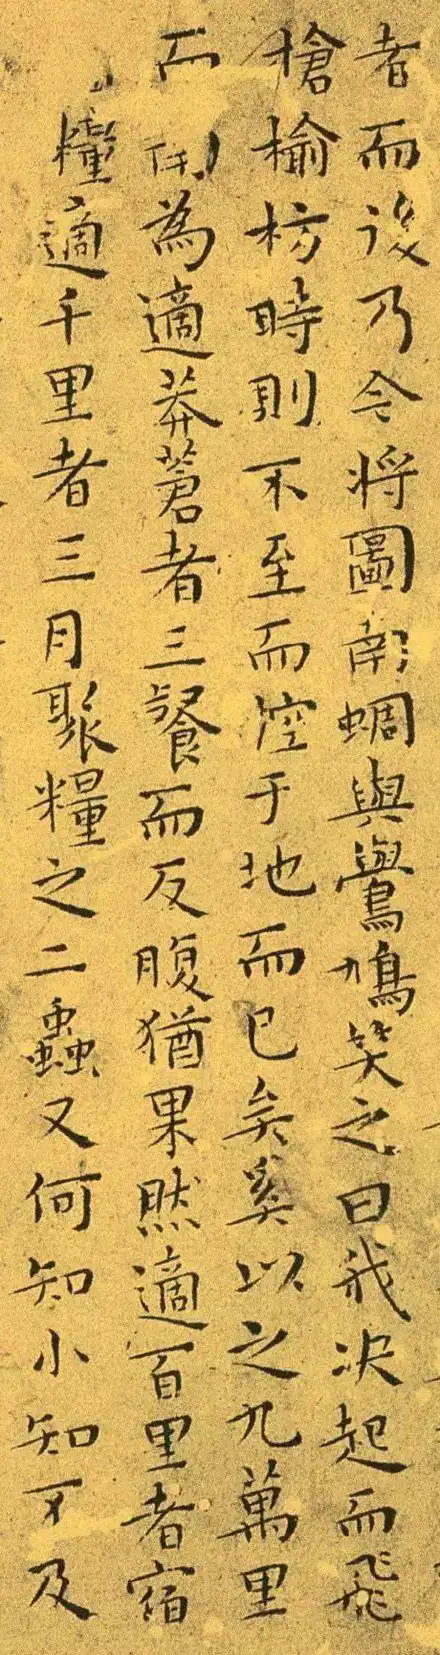 者而後乃今将圖南蜩與鷽鳩笑之曰我决起而飛
槍榆枋時則不至而控于地而已矣奚以之九萬里
而 為適莽蒼者三飡而反腹猶果然適百里者宿
糧適千里者三月聚糧之二蟲又何知小知不及